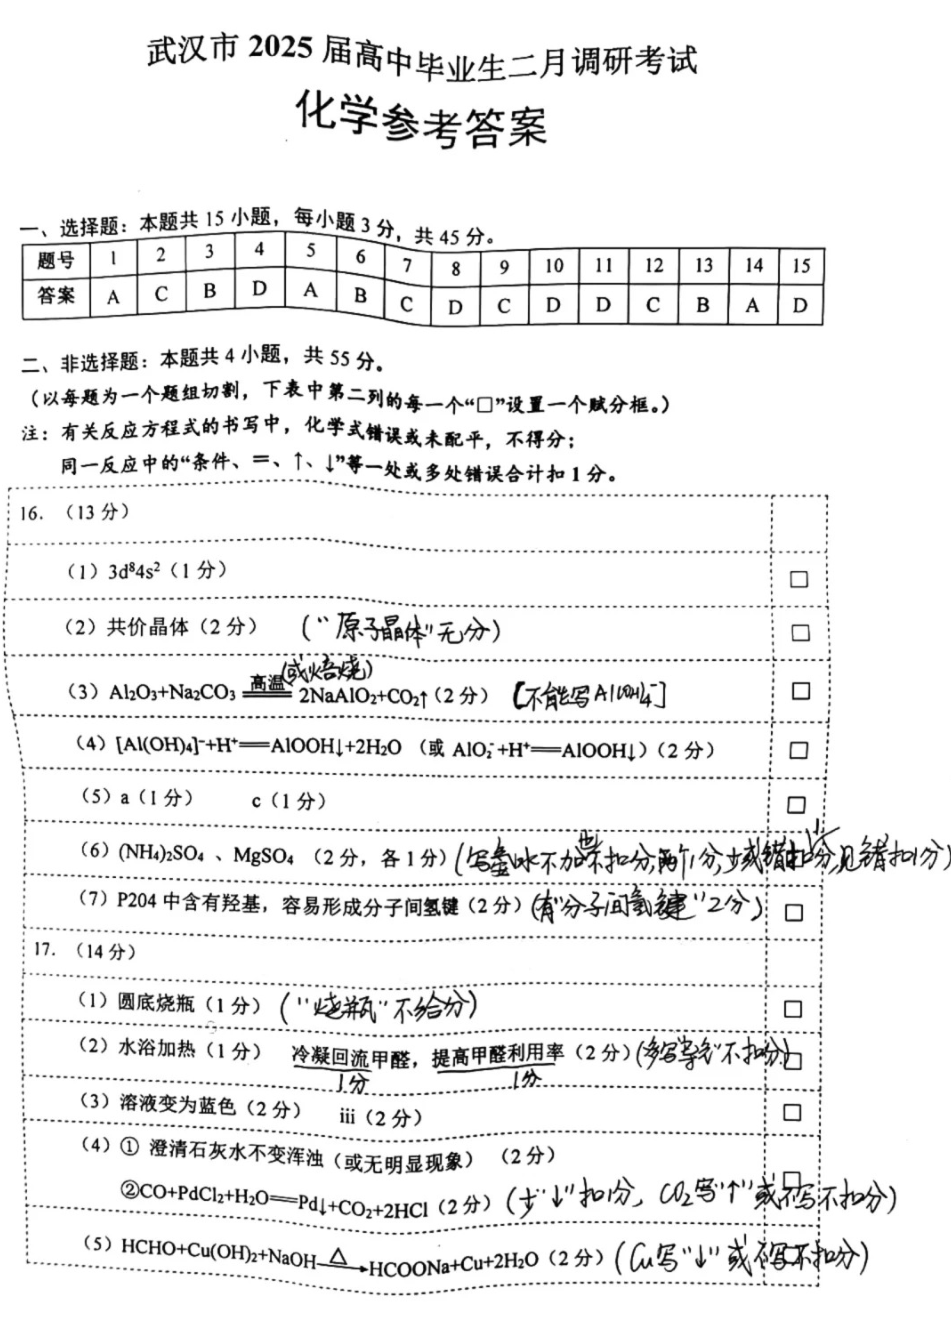 武汉市 2025 届高中毕业生二月调研考试
化学参考答案
一、选择题：本题共 15 小题，每小题 3 分，共 45 分。
题号 1 2 3 4 5 6 7 8 9 10 11 12 13 14 15
答案 A C B D A B C D C D D C B A D
二、非选择题：本题共 4 小题，共 55 分。
（以每题为一个题组切割，下表中第二列的每一个“□”设置一个赋分框。）
注：有关反应方程式的书写中，化学式错误或未配平，不得分；
同一反应中的“条件、═、↑、↓”等一处或多处错误合计扣 1 分。
16. （13 分）
（1）3d⁸4s²（1 分）
（2）共价晶体（2 分） （“原子晶体”无分）
（3）Al₂O₃+Na₂CO₃ ═高温(或焙烧)═ 2NaAlO₂+CO₂↑（2 分） [不能写Al(OH)₄⁻]
（4）[Al(OH)₄]⁻+H⁺══AlOOH↓+2H₂O （或 AlO₂⁻+H⁺══AlOOH↓）（2 分）
（5）a（1 分） c（1 分）
（6）(NH₄)₂SO₄ 、MgSO₄ （2 分，各 1 分）
（7）P204 中含有羟基，容易形成分子间氢键（2 分）（有“分子间氢键”2分）
17. （14 分）
（1）圆底烧瓶（1 分）（“烧瓶”不给分）
（2）水浴加热（1 分） 冷凝回流甲醛，提高甲醛利用率（2 分）
1分 1分
（3）溶液变为蓝色（2 分） iii（2 分）
（4）① 澄清石灰水不变浑浊（或无明显现象） （2 分）
②CO+PdCl₂+H₂O══Pd↓+CO₂+2HCl（2 分）（少“↓”扣1分，CO₂写“↑”或不写不扣分）
（5）HCHO+Cu(OH)₂+NaOH—△→HCOONa+Cu+2H₂O（2 分）（Cu写“↓”或不写不扣分）